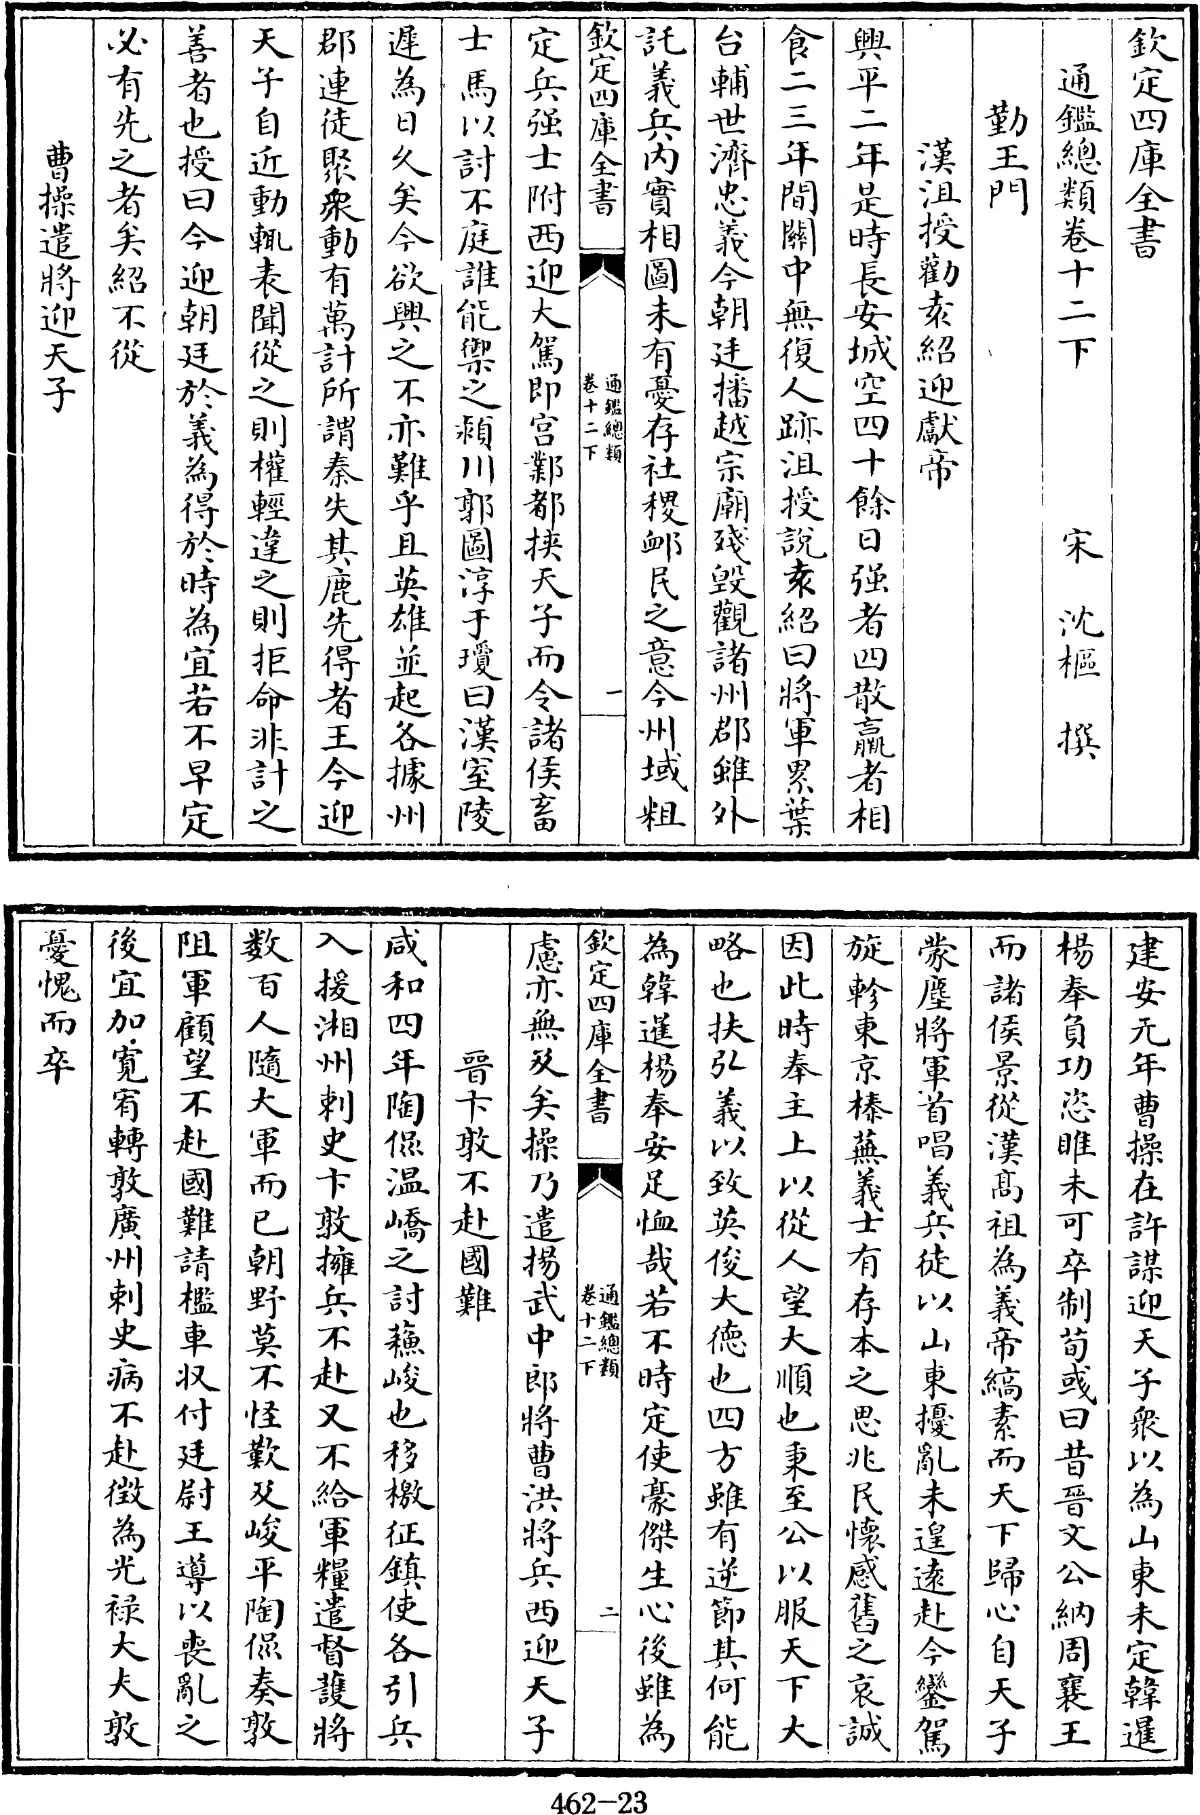 欽定四庫全書
通鑑總類卷十二下　宋　沈樞　撰
勤王門
漢沮授勸袁紹迎獻帝
興平二年是時長安城空四十餘日强者四散羸者相
食二三年間關中無復人跡沮授說袁紹曰將軍累葉
台輔世濟忠義今朝廷播越宗廟殘毁觀諸州郡雖外
託義兵内實相圖未有憂存社稷䘏民之意今州域粗
欽定四庫全書
通鑑總類
卷十二下
一
定兵强士附西迎大駕即宫鄴都挾天子而令諸侯畜
士馬以討不庭誰能禦之潁川郭圖淳于瓊曰漢室陵
遲為日久矣今欲興之不亦難乎且英雄並起各據州
郡連徒聚衆動有萬計所謂秦失其鹿先得者王今迎
天子自近動輒表聞從之則權輕違之則拒命非計之
善者也授曰今迎朝廷於義為得於時為宜若不早定
必有先之者矣紹不從
曹操遣將迎天子
建安元年曹操在許謀迎天子衆以為山東未定韓暹
楊奉負功恣睢未可卒制荀彧曰昔晉文公納周襄王
而諸侯景從漢髙祖為義帝縞素而天下歸心自天子
蒙塵將軍首唱義兵徒以山東擾亂未遑遠赴今鑾駕
旋軫東京榛蕪義士有存本之思兆民懷感舊之哀誠
因此時奉主上以從人望大順也秉至公以服天下大
略也扶弘義以致英俊大德也四方雖有逆節其何能
為韓暹楊奉安足恤哉若不時定使豪傑生心後雖為
欽定四庫全書
通鑑總類
卷十二下
二
慮亦無及矣操乃遣揚武中郎將曹洪將兵西迎天子
晉卞敦不赴國難
咸和四年陶侃温嶠之討蘓峻也移檄征鎮使各引兵
入援湘州刺史卞敦擁兵不赴又不給軍糧遣督護將
数百人隨大軍而已朝野莫不怪歎及峻平陶侃奏敦
阻軍顧望不赴國難請檻車収付廷尉王導以喪亂之
後宜加寛宥轉敦廣州刺史病不赴徴為光禄大夫敦
憂愧而卒
462-23